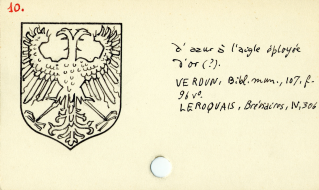 10.
d'azur à l'aigle éployée
d'or (?).
VERDUN, Bibl. mun., 107, f.
96 v°.
LEROQUAIS, Bréviaires, IV, 306